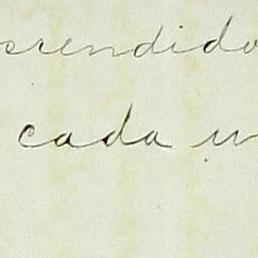 crendido
cada u